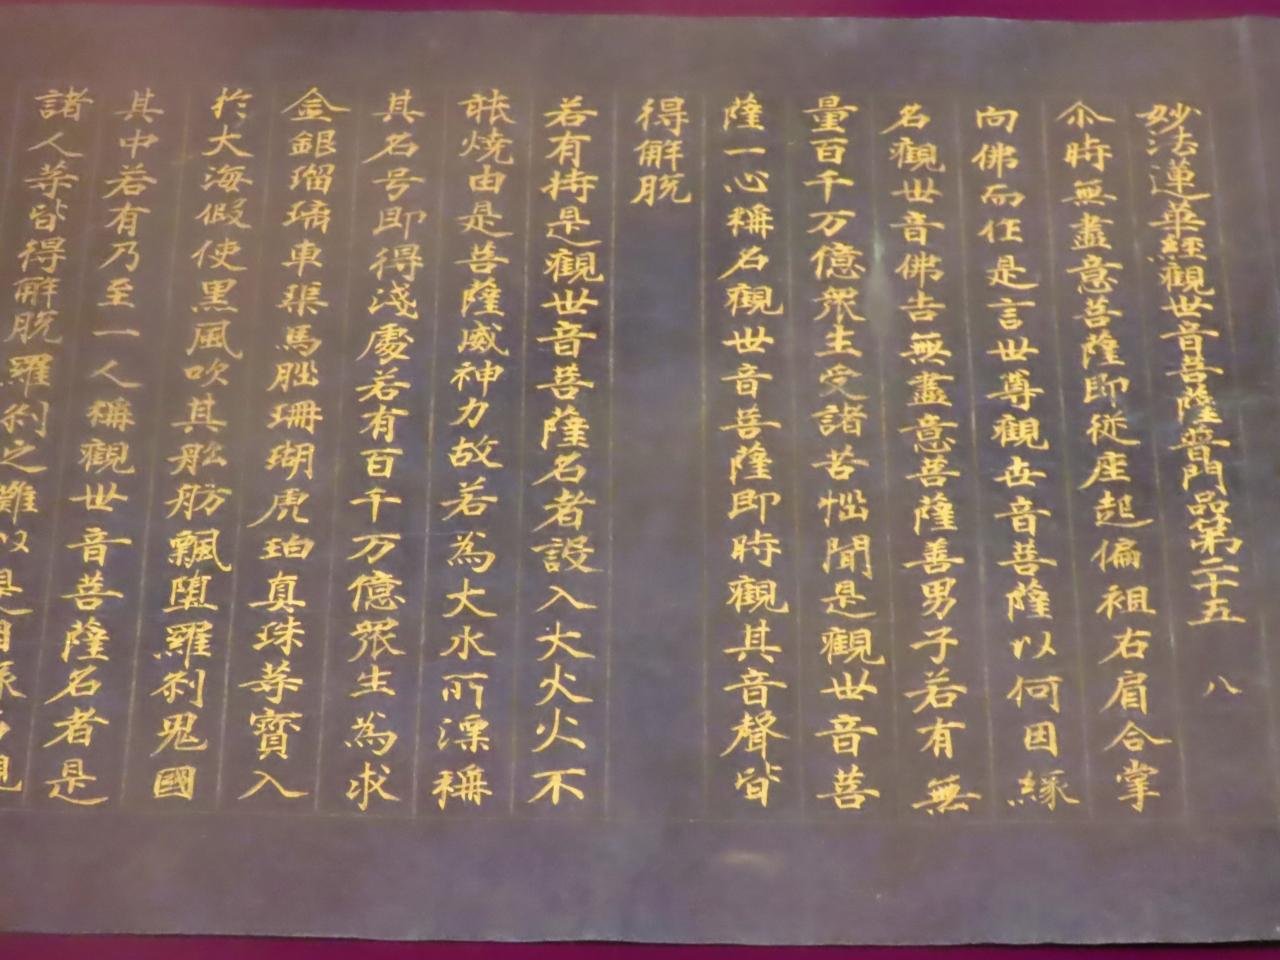 妙法蓮華經觀世音菩薩普門品第二十五 八
尒時無盡意菩薩即從座起偏袒右肩合掌
向佛而作是言世尊觀世音菩薩以何因緣
名觀世音佛告無盡意菩薩善男子若有無
量百千万億衆生受諸苦惱聞是觀世音菩
薩一心稱名觀世音菩薩即時觀其音聲皆
得解脫
若有持是觀世音菩薩名者設入大火火不
能燒由是菩薩威神力故若為大水所漂稱
其名号即得淺處若有百千万億衆生為求
金銀瑠璃車渠馬瑙珊瑚虎珀真珠等寶入
於大海假使黑風吹其舩舫飄堕羅刹鬼國
其中若有乃至一人稱觀世音菩薩名者是
諸人等皆得解脫羅刹之難以是